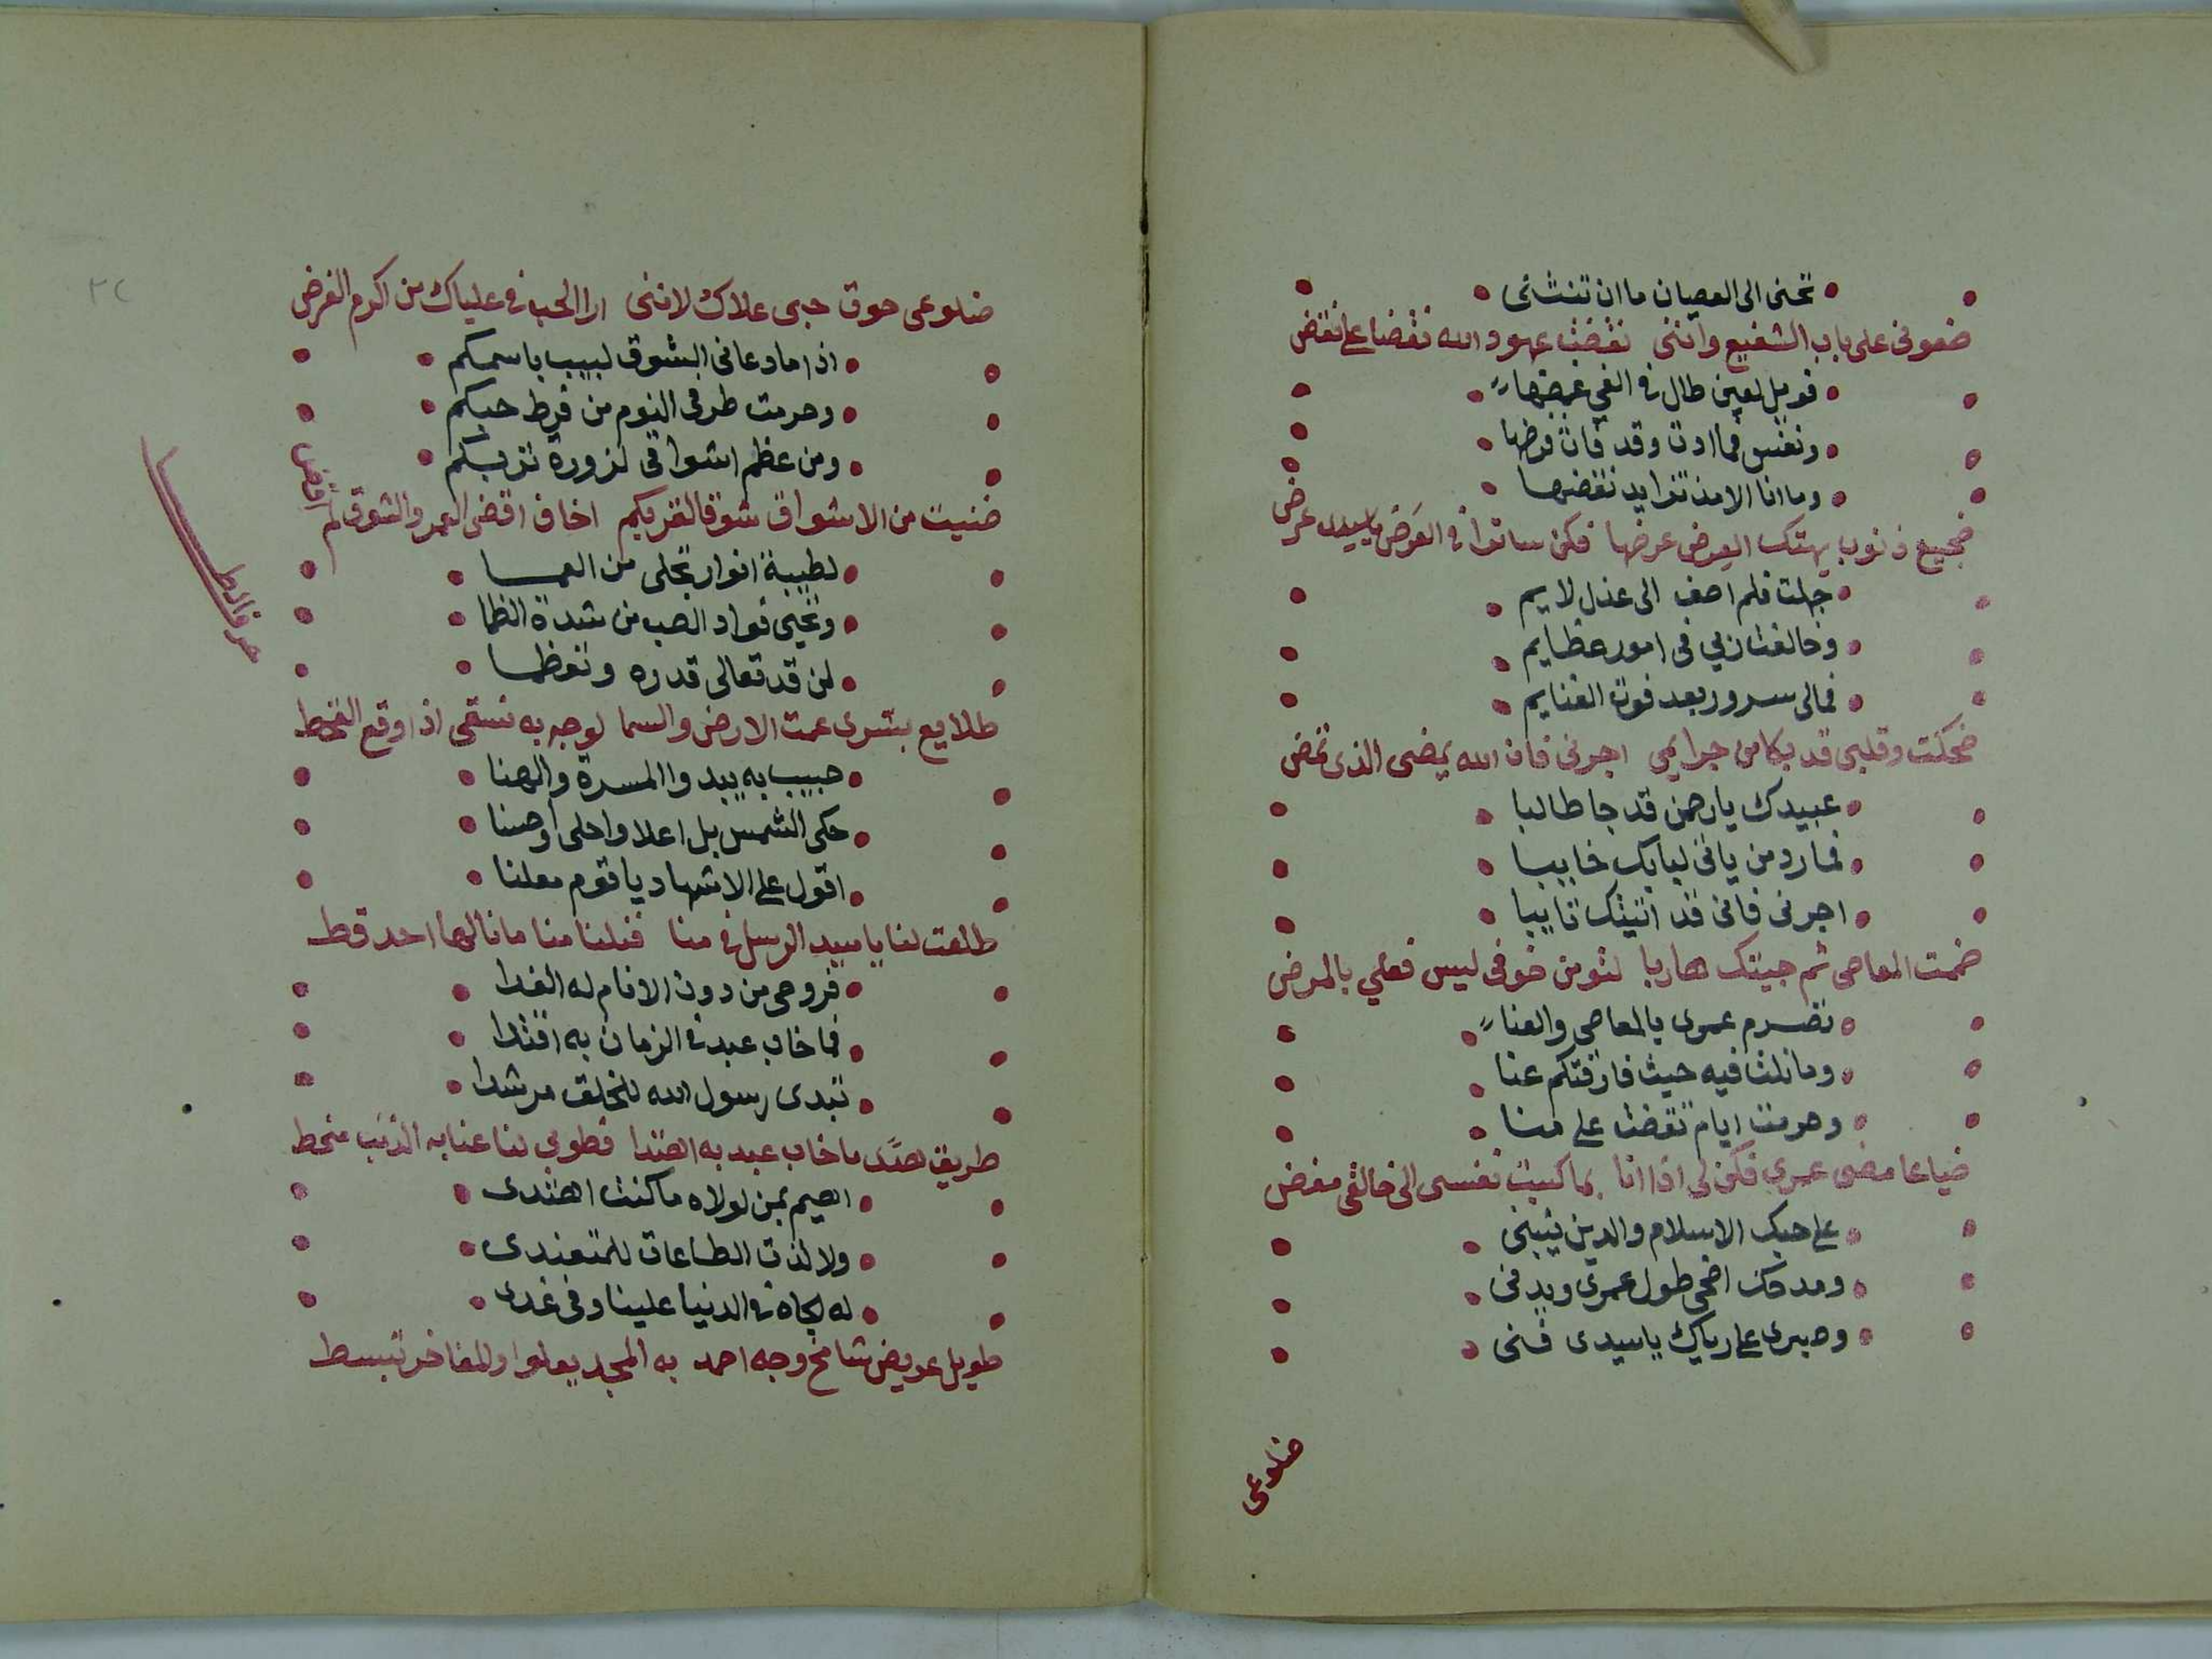 تحنى الى العصيان ما ان تنثنى
ضعوفى على باب الشفيع واننى نقضت عهود الله نقضا على نقض
فويل لعين طال فى الغي غمضها
ونفس فما ادت وقد فات فرضها
وما انا الا مذ تزايد نقضها
ضجيع ذنوب يهتك العرض عرضها فكن ساترا فى العرض ياسيدى عرضى
جهلت فلم اصغ الى عذل لايم
وخالفت ربي فى امور عظايم
فمالى سرور بعد فوت الغنايم
ضحكت وقلبى قد بكا من جرايمي اجرنى فان الله يمضى الذى تمضى
عبيدك يارحمن قد جا طالبا
فما رد من ياتى لبابك خايبا
اجرنى فانى قد اتيتك تايبا
ضممت المعاصى ثم جيتك هاربا لثومن خوفى ليس فعلي بالمرض
تصرم عمرى بالمعاصى والعنا
وما نلت فيه حيث فارقتكم عنا
وحرمت ايام تقضت على منا
ضياعا مضى عمري فكن لى اذا انا بما كسبت نفسى الى خالقى مفض
على حبك الاسلام والدين يثبنى
ومدحك اضحى طول عمرى ويدفنى
وصبرى على رياك ياسيدى فنى
ضلوعى
٢٢
ضلوعى حوق حبى علاك لاننى ارا الحب فى علياك من اكرم الفرض
اذا ما دعانى الشوق لبيب باسمكم
وحرمت طرفى النوم من فرط حبكم
ومن عظم اشواقى لزورة تربكم
ضنيت من الاشواق شوقا لقربكم اخاف اقضى العمر والشوق لم اقض
حرف الطا
لطيبة انوار تجلى من العمـا
وتحيى فواد الصب من شدة الظما
لمن قد تعالى قدره وتعظما
طلايع بشرى عمت الارض والسما لوجه به نسقى اذا وقع القحط
حبيب به يبدوا المسرة والهنا
حكى الشمس بل اعلا واحلى واحسنا
اقول على الاشهاد ياقوم معلنا
طلعت لنا ياسيد الرسل فى منا فنلنا منا ما نالها احد قط
فروحى من دون الانام له الفدا
فما خاب عبد فى الزمان به اقتدا
تبدى رسول الله للخلق مرشدا
طريق هدى ما خاب عبد به اهتدا فطوبى لنا عنا به الذنب منحط
اهيم بمن لولاه ما كنت اهتدى
ولا لذت الطاعات للمتعبدى
له الجاه فى الدنيا علينا وفى غدى
طويل عريض شامخ وجه احمد به المجد يعلوا والمفاخر تبسط